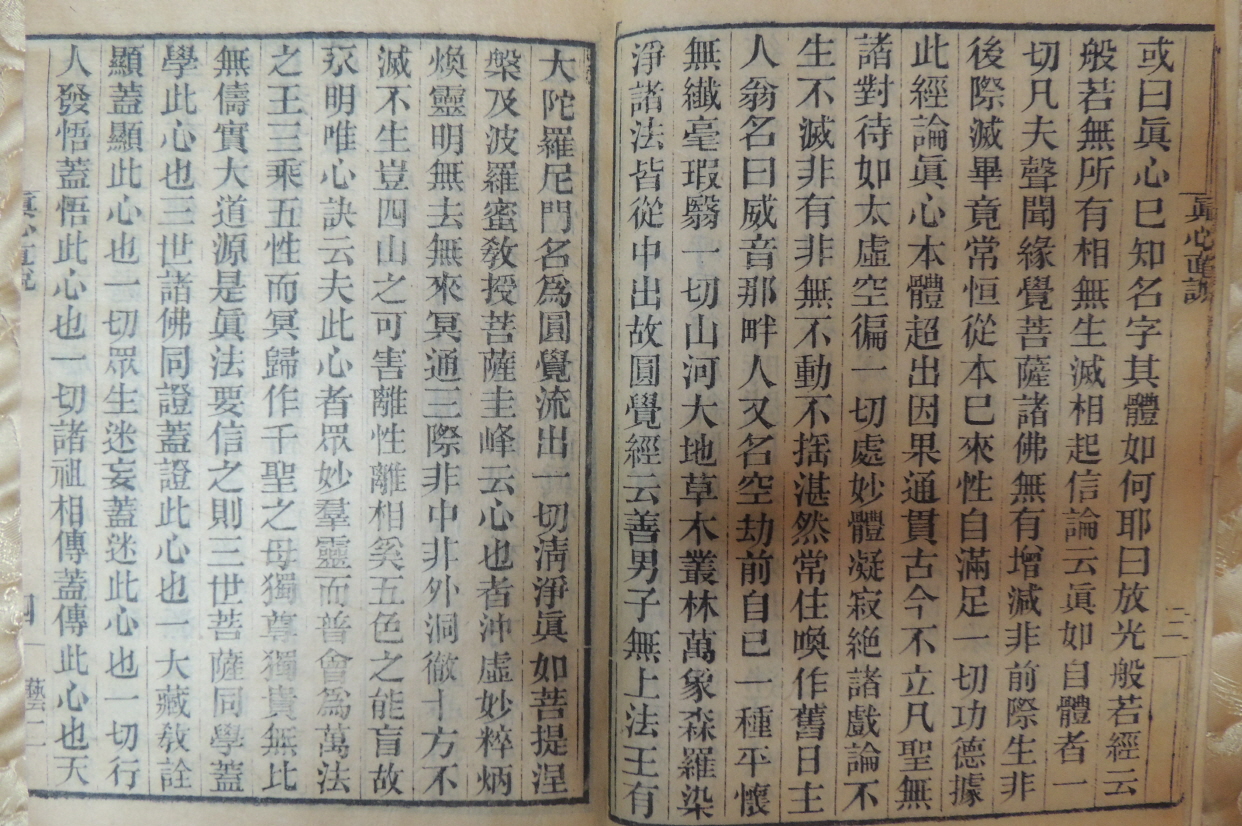 眞心直說
三
或曰眞心已知名字其體如何耶曰放光般若經云
般若無所有相無生滅相起信論云眞如自體者一
切凡夫聲聞緣覺菩薩諸佛無有增減非前際生非
後際滅畢竟常恒從本已來性自滿足一切功德據
此經論眞心本體超出因果通貫古今不立凡聖無
諸對待如太虛空徧一切處妙體凝寂絕諸戲論不
生不滅非有非無不動不搖湛然常住喚作舊日主
人翁名曰威音那畔人又名空劫前自己一種平懷
無纖毫瑕翳一切山河大地草木叢林萬象森羅染
淨諸法皆從中出故圓覺經云善男子無上法王有
大陀羅尼門名爲圓覺流出一切淸淨眞如菩提涅
槃及波羅蜜敎授菩薩圭峰云心也者沖虛妙粹炳
煥靈明無去無來冥通三際非中非外洞徹十方不
滅不生豈四山之可害離性離相奚五色之能盲故
永明唯心訣云夫此心者眾妙羣靈而普會爲萬法
之王三乘五性而冥歸作千聖之母獨尊獨貴無比
無儔實大道源是眞法要信之則三世菩薩同學蓋
學此心也三世諸佛同證蓋證此心也一大藏敎詮
顯蓋顯此心也一切眾生迷妄蓋迷此心也一切行
人發悟蓋悟此心也一切諸祖相傳蓋傳此心也天
眞心直說
四
藝二